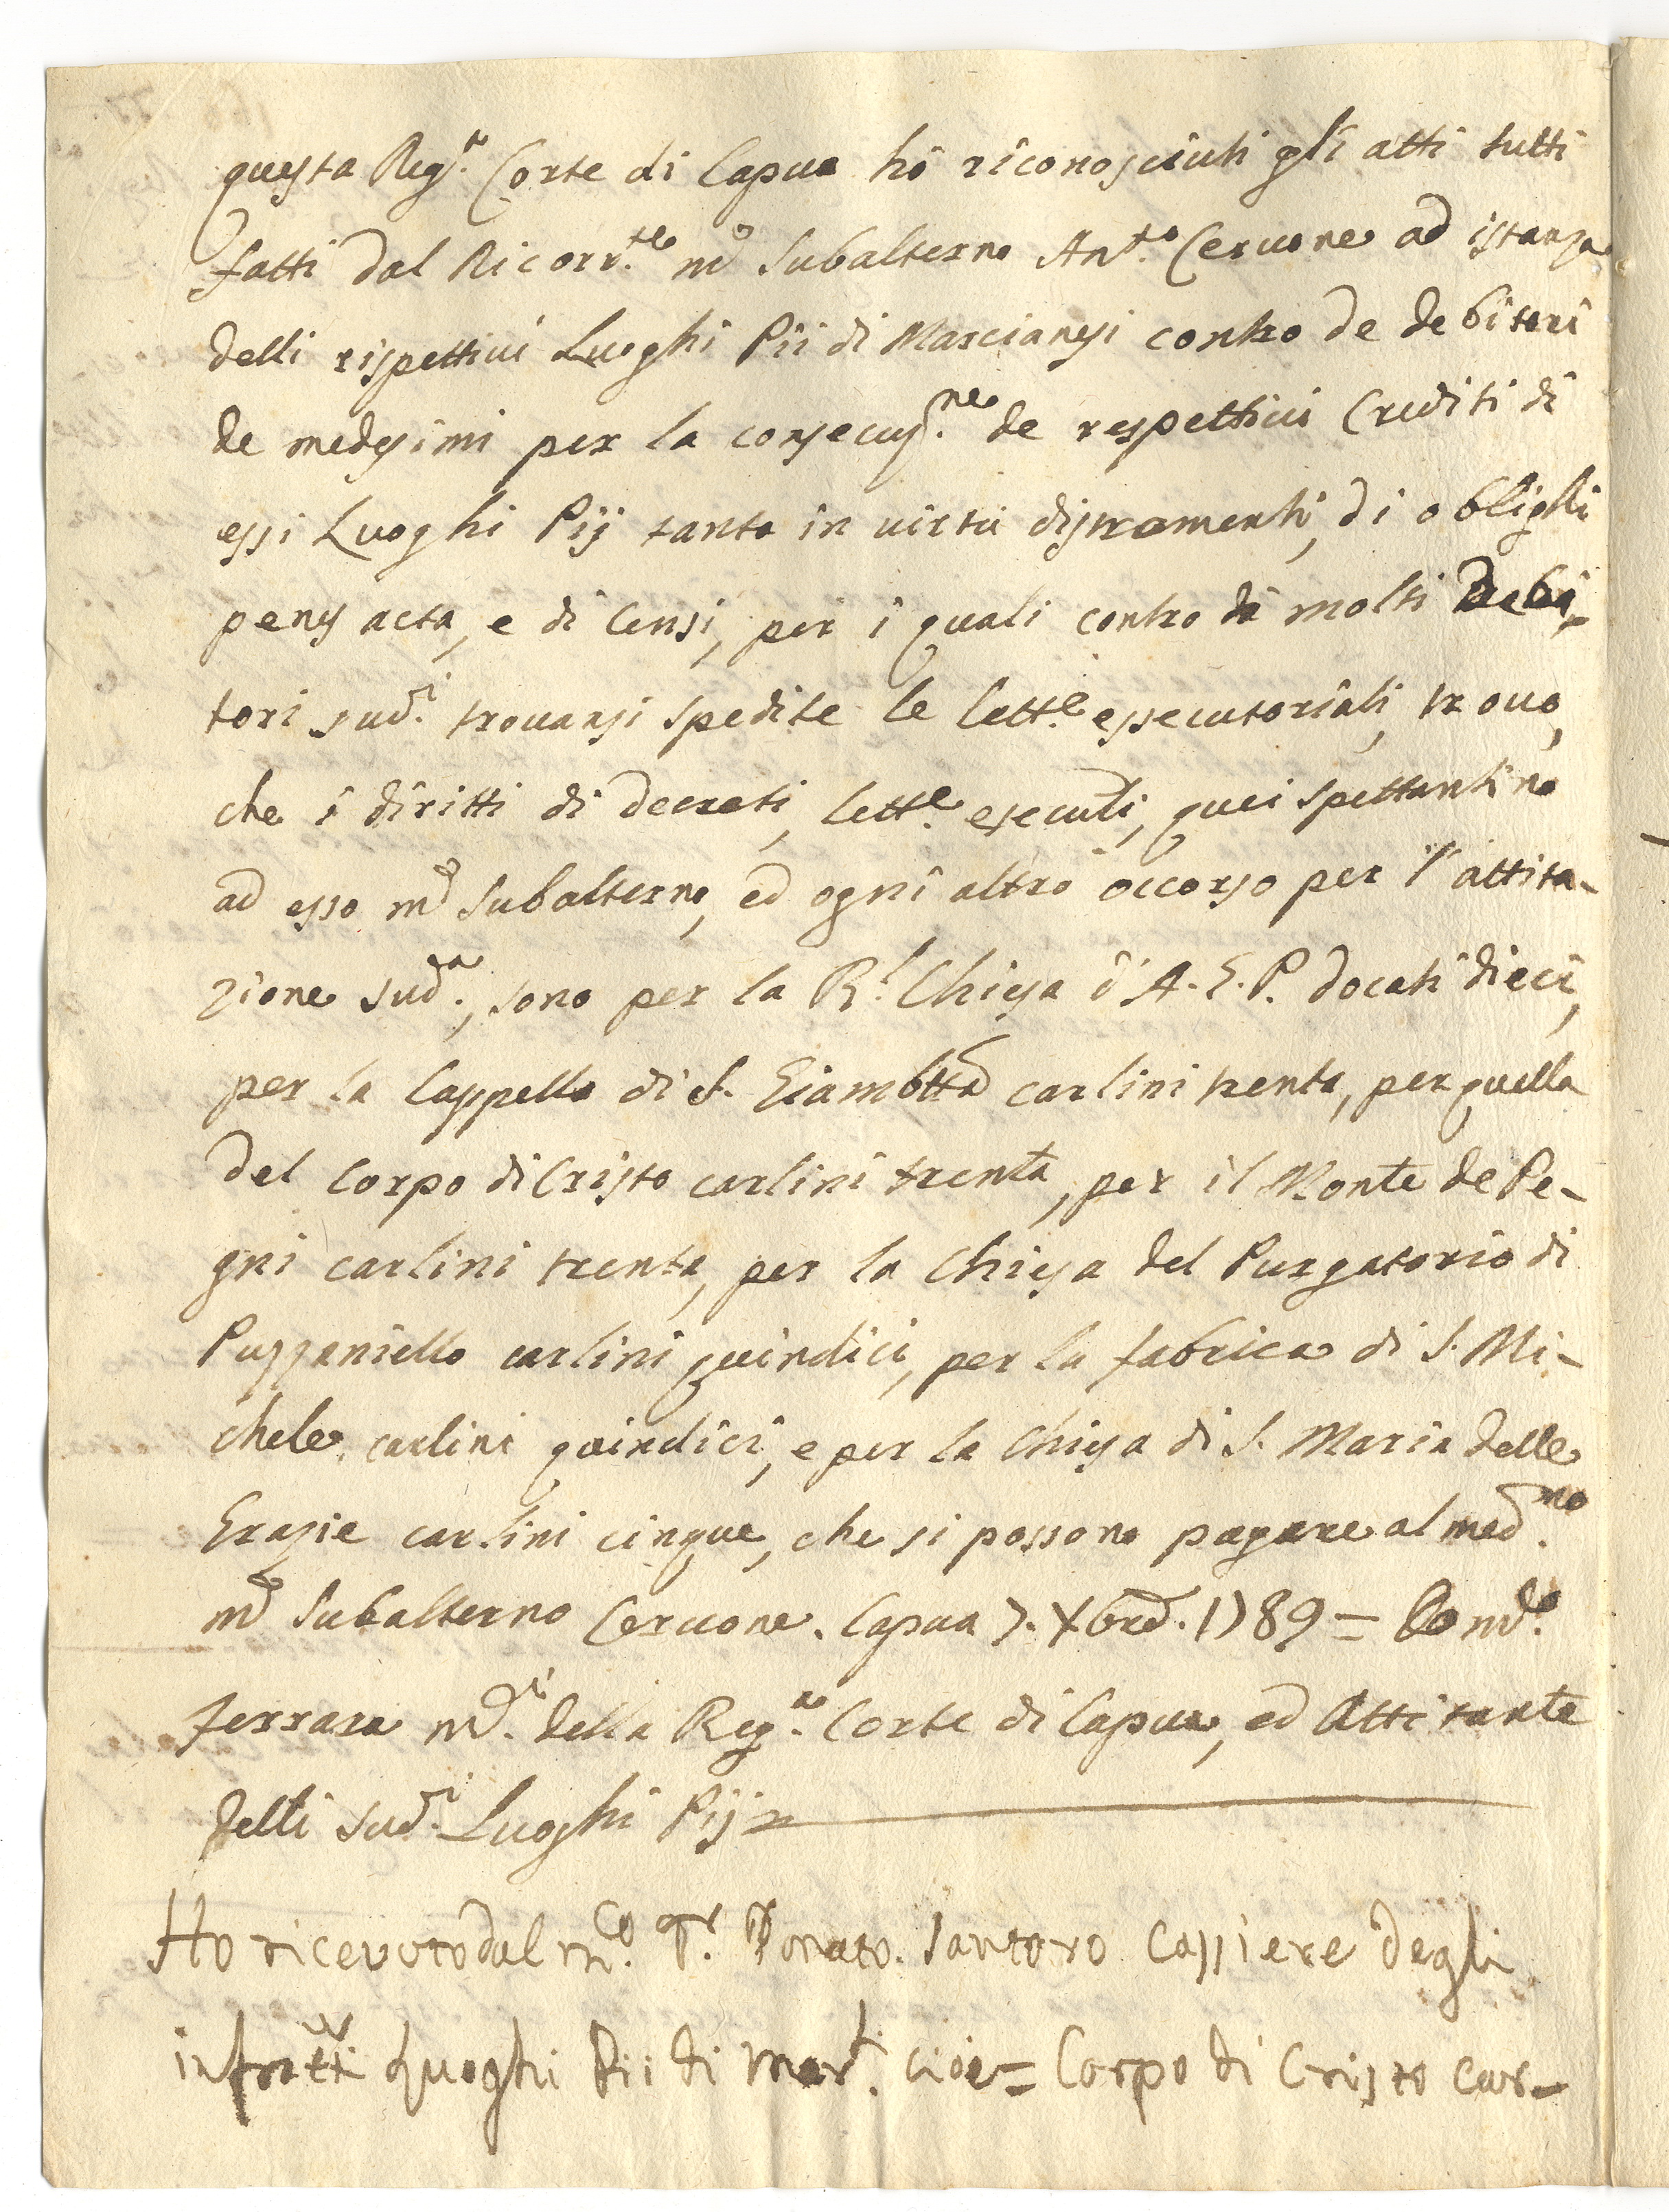 questa Reg.ª Corte di Capua hò riconosciuti gli atti tutti
fatti dal Ricorr.te md Subalterno Ant.º Cervone ad istanza
delli rispettivi Luoghi Pii di Marcianesi contro de debitori
de medesimi per la consecuz.ne de respettivi Crediti di
essi Luoghi Pij tanto in virtù d'istromenti, di oblighi
penes acta, e di Censi, per i quali contro di molti Debi-
tori sud.i trovansi spedite le lett.e essecutoriali, trovo,
che i diritti di decreti, lett.e esecut.i, quei spettantino
ad esso md Subalterno, ed ogni altro occorso per l'attita-
zione sud.a, sono per la R.l Chiesa d'A. G. P. docati dieci,
per la Cappella di S. Giambtta carlini trenta, per quella
del Corpo di Cristo carlini trenta, per il Monte de Pe-
gni carlini trenta, per la Chiesa del Purgatorio di
Puzzaniello carlini quindici, per la fabrica di S. Mi-
chele carlini quindici, e per la Chiesa di S. Maria delle
Grazie carlini cinque, che si possono pagare al med.mo
md Subalterno Cervone. Capua 7. Xbre. 1789 =
Ferrara md. della Reg.a Corte di Capua, ed Attitante
delli sud.i Luoghi Pij =
Ho ricevuto dal m.co Donato Santoro Cassiere degli
infratti Luoghi Pii di Mar. cioè = Corpo di Cristo car-